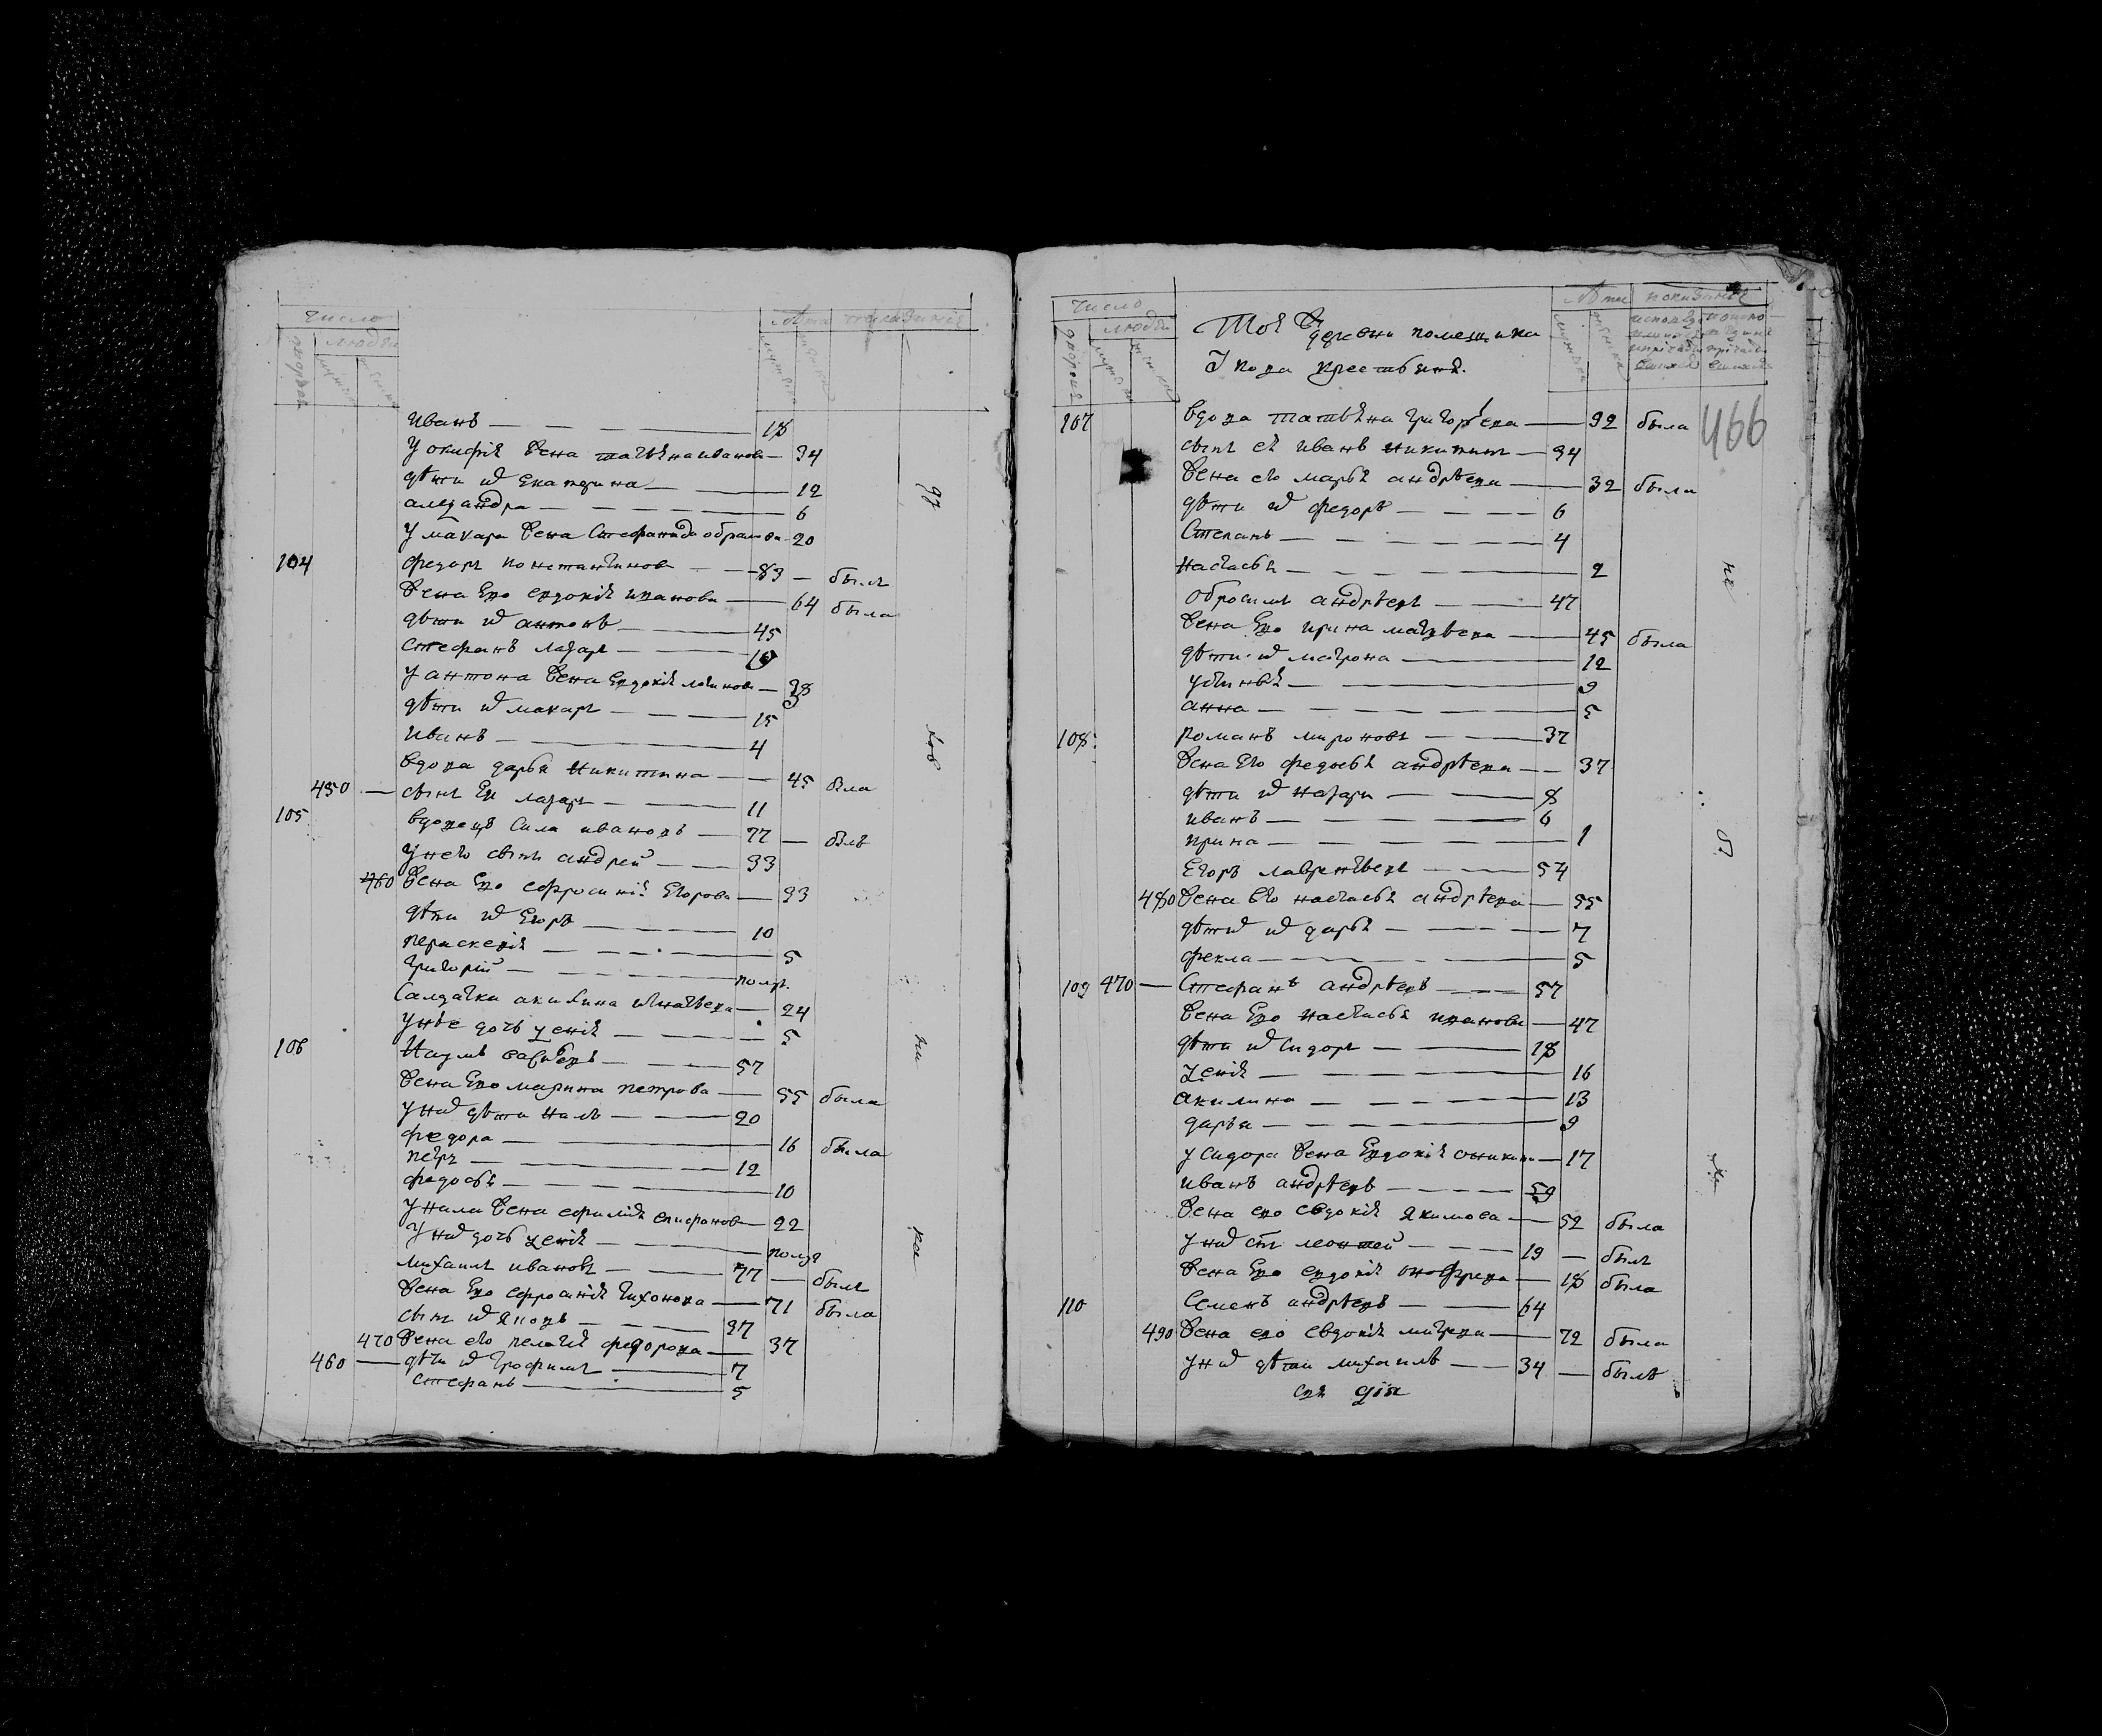 число
людей
дворовъ
лѣта
показания
иванъ — 18
у окифія жена татьяна иванова — 34
дѣти их екатерина — 12
александра — 6
у макара жена стефанида обрамова — 20
104 федоръ константиновъ — 83 — былъ
жена ево евдокія иванова — 64 была
дѣти их антонъ — 45
стефанъ лазаръ — 10
у антона жена евдокія логинова — 38
дѣти их макаръ — 15
иванъ — 4
вдова дарья никитина — 45 была
450 — сынъ ея лазаръ — 11
105 вдовецъ сила ивановъ — 77 — былъ
у него сынъ андрей — 33
460 жена ево ефросинія егорова — 33
дѣти их егоръ — 10
параскевия — 5
григорій — полгу
салдатка акилина игнатьева — 24
у нее дочь ксенія — 5
106 наумъ савельевъ — 57
жена ево марина петрова — 55 была
у них дѣти наль — 20
федора — 16 была
петръ — 12
федосья — 10
у нала жена ефимія епифанова — 22
у них дочь ксенія — полгу
михаилъ ивановъ — 77 — былъ
жена ево ефросинія тихонова — 71 была
сынъ их яковъ — 37
470 жена его пелагія федорова — 37
460 — дѣти их трофимъ — 7
стефанъ — 5
число
людей
дворовъ
лѣта
показания
Тоя ж деревни помещика
крестьяня.
466
107 вдова татьяна григорьева — 92 была
сынъ ея иванъ никитинъ — 34
жена его марья андрѣева — 32 была
дѣти их федоръ — 6
степанъ — 4
настасья — 2
обросимъ андрѣевъ — 47
жена ево ирина матвѣева — 45 была
дѣти их матрона — 12
устинья — 9
анна — 5
108 романъ мироновъ — 37
жена его федосья андрѣева — 37
дѣти их назаръ — 8
иванъ — 6
ирина — 1
егоръ лаврентьевъ — 54
480 жена его настасья андрѣева — 55
дѣти их дарья — 7
фекла — 5
109 470 — стефанъ андрѣевъ — 57
жена ево настасья иванова — 47
дѣти их сидоръ — 18
ксенія — 16
акилина — 13
дарья — 9
у сидора жена евдокія — 17
иванъ андрѣевъ — 59
жена ево евдокія якимова — 52 была
у них сынъ леонтей — 19 — былъ
жена ево евдокія онофреева — 18 была
110 семенъ андрѣевъ — 64
490 жена ево евдокія — 72 была
у них дѣти михаилъ — 34 — былъ